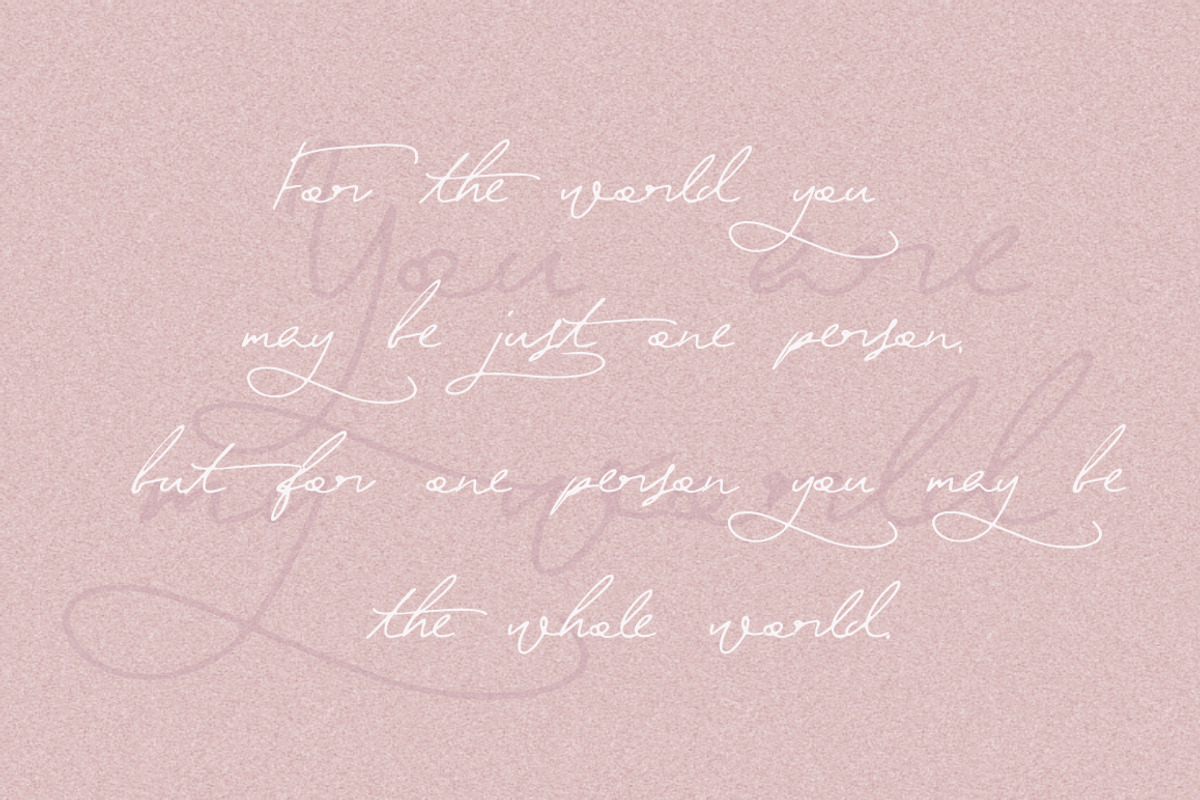 For the world you
You are
may be just one person.
but for one person you may be
my world
the whole world.